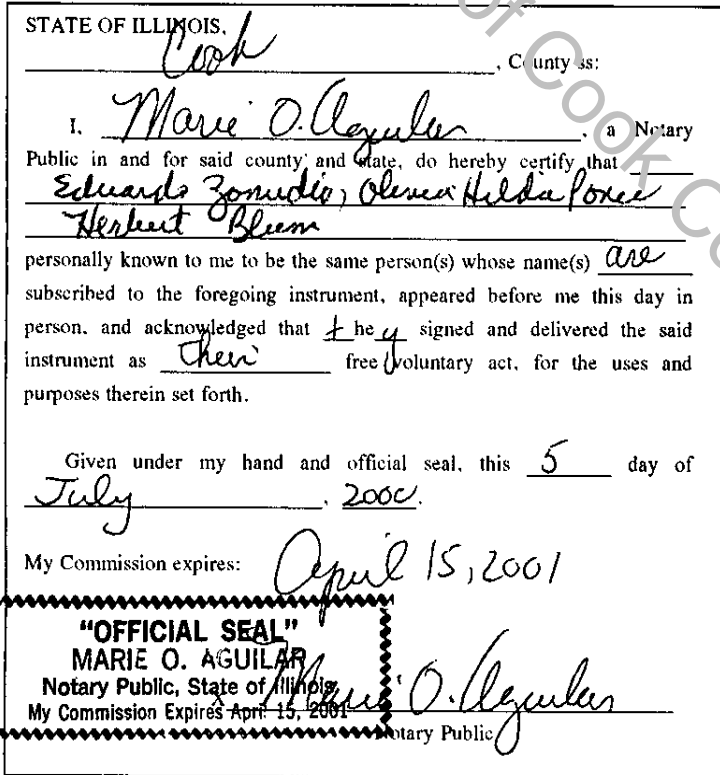 STATE OF ILLINOIS,
Cook , County ss:
I, Marie O. Aguilar , a Notary
Public in and for said county and state, do hereby certify that
Eduardo Zamudio, Hilda Ponce
Herbert Blum
personally known to me to be the same person(s) whose name(s) are
subscribed to the foregoing instrument, appeared before me this day in
person, and acknowledged that t he y signed and delivered the said
instrument as their free voluntary act, for the uses and
purposes therein set forth.
Given under my hand and official seal, this 5 day of
July , 2000.
My Commission expires: April 15, 2001
"OFFICIAL SEAL"
MARIE O. AGUILAR
Notary Public, State of Illinois
My Commission Expires April 15, 2001
Marie O. Aguilar
Notary Public
of Cook Co